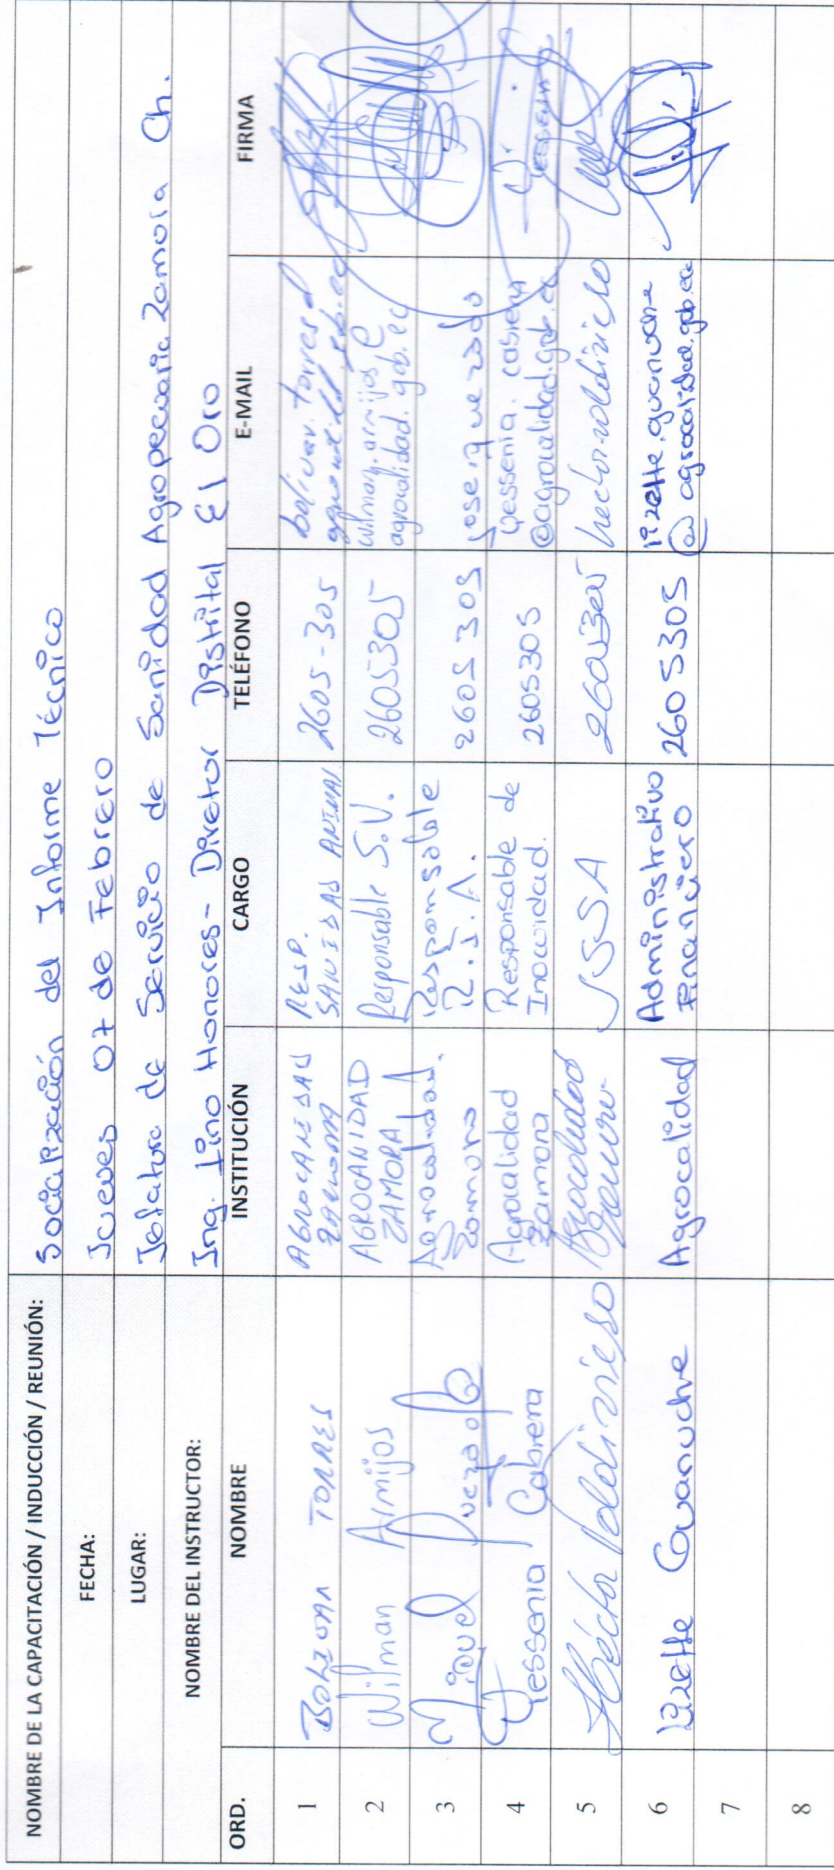 NOMBRE DE LA CAPACITACIÓN / INDUCCIÓN / REUNIÓN: Socialización del Informe Técnico
FECHA: Jueves 07 de Febrero
LUGAR: Jefatura de Servicio de Sanidad Agropecuaria Zamora Ch.
NOMBRE DEL INSTRUCTOR: Ing. Lino Honores - Director Distrital El Oro
ORD. NOMBRE INSTITUCIÓN CARGO TELÉFONO E-MAIL FIRMA
1 BOLIVAR TORRES AGROCALIDAD ZAMORA RESP. SANIDAD ANIMAL 2605-305 bolivar.torres@
2 Wilman Armijos AGROCALIDAD ZAMORA Responsable S.V. 2605305 wilman.armijos@ agrocalidad.gob.ec
3 Miguel Quezada Agrocalidad Zamora Responsable R.I.A. 2605305
4 Yessenia Cabrera Agrocalidad Zamora Responsable de Inocuidad. 2605305 yessenia.cabrera @agrocalidad.gob.ec Yessenia
5 Héctor Valdivieso Agrocalidad Zamora JSSA 2605305 hector.valdivieso
6 Lizette Guanuche Agrocalidad Administrativo Financiero 2605305 lizette.guanuche @agrocalidad.gob.ec
7
8